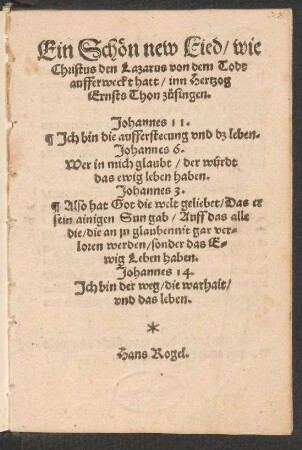 Ein Schön new Lied/ wie
Christus den Lazarus von dem Todt
aufferweckt hatt/ inn Hertzog
Ernsts Thon züsingen.
Johannes 11.
¶ Ich bin die aufferstecung vnd dz leben.
Johannes 6.
Wer in mich glaubt/ der würdt
das ewig leben haben.
Johannes 3.
¶ Also hat Got die welt geliebet/ Das er
sein ainigen Sun gab/ Auff das alle
die/ die an jn glauben nit gar ver-
loren werden/ sonder das E-
wig Leben haben.
Johannes 14.
Ich bin der weg/ die warhait/
vnd das leben.
*
Hans Rogel.